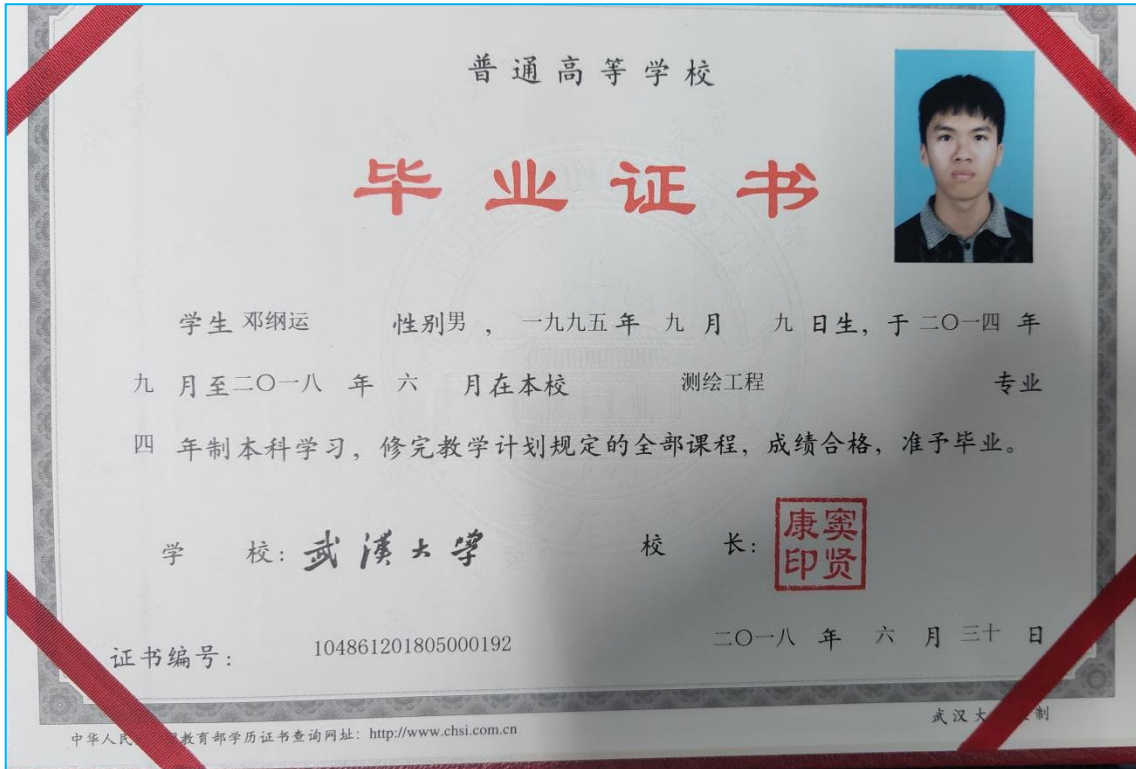 普通高等学校
毕业证书
学生 邓纲运 性别男，一九九五年 九 月 九 日生，于二〇一四 年
九 月至二〇一八 年 六 月在本校 测绘工程 专业
四 年制本科学习，修完教学计划规定的全部课程，成绩合格，准予毕业。
学 校：武漢大学 校 长：窦贤康印
证书编号： 104861201805000192 二〇一八 年 六 月 三十 日
武汉大 制
中华人民 教育部学历证书查询网址：http://www.chsi.com.cn